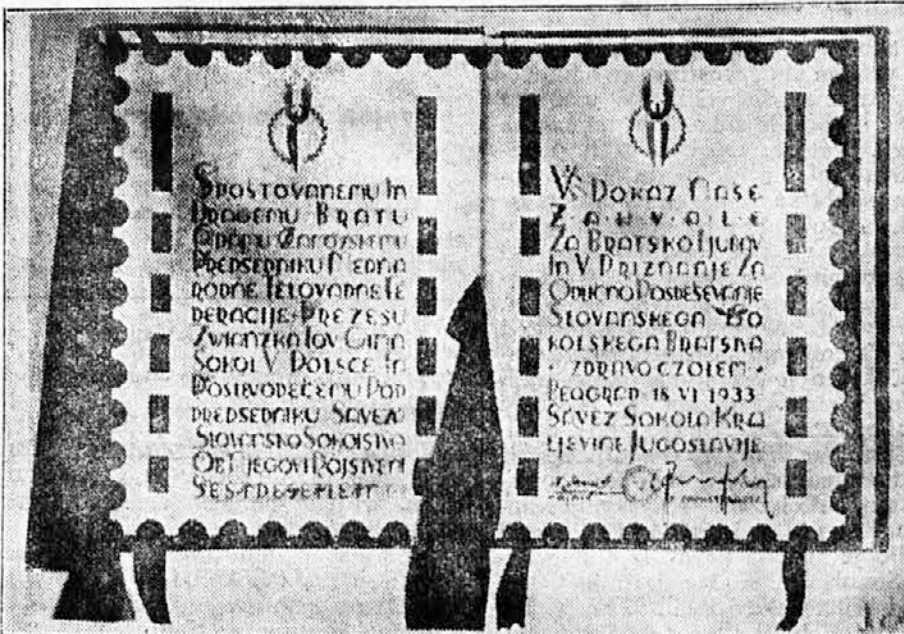 SPOŠTOVANEMU IN
DRAGEMU BRATU
ADAMU ZAMOYSKEMU
PREDSEDNIKU MEDNA
RODNE TELOVADNE FE
DERACIJE, PREZESU
ZWIĄZKA TOV GIMN
SOKOL V POLSCE IN
POSLEVODEČEMU POD
PREDSEDNIKU SAVEZA
SLOVANSKO SOKOLSTVA
OB NJEGOVI
ŠESTDESETLETNICI
V DOKAZ NAŠE
ZAHVALE
ZA BRATSKO LJUBAV
IN V PRIZNANJE ZA
ODLIČNO POSPEŠEVANJE
SLOVANSKEGA SO
KOLSKEGA BRATSTVA
· ZDRAVO CZOLEM ·
BEOGRAD 18 VI 1933
SAVEZ SOKOLA KRA
LJEVINE JUGOSLAVIJE